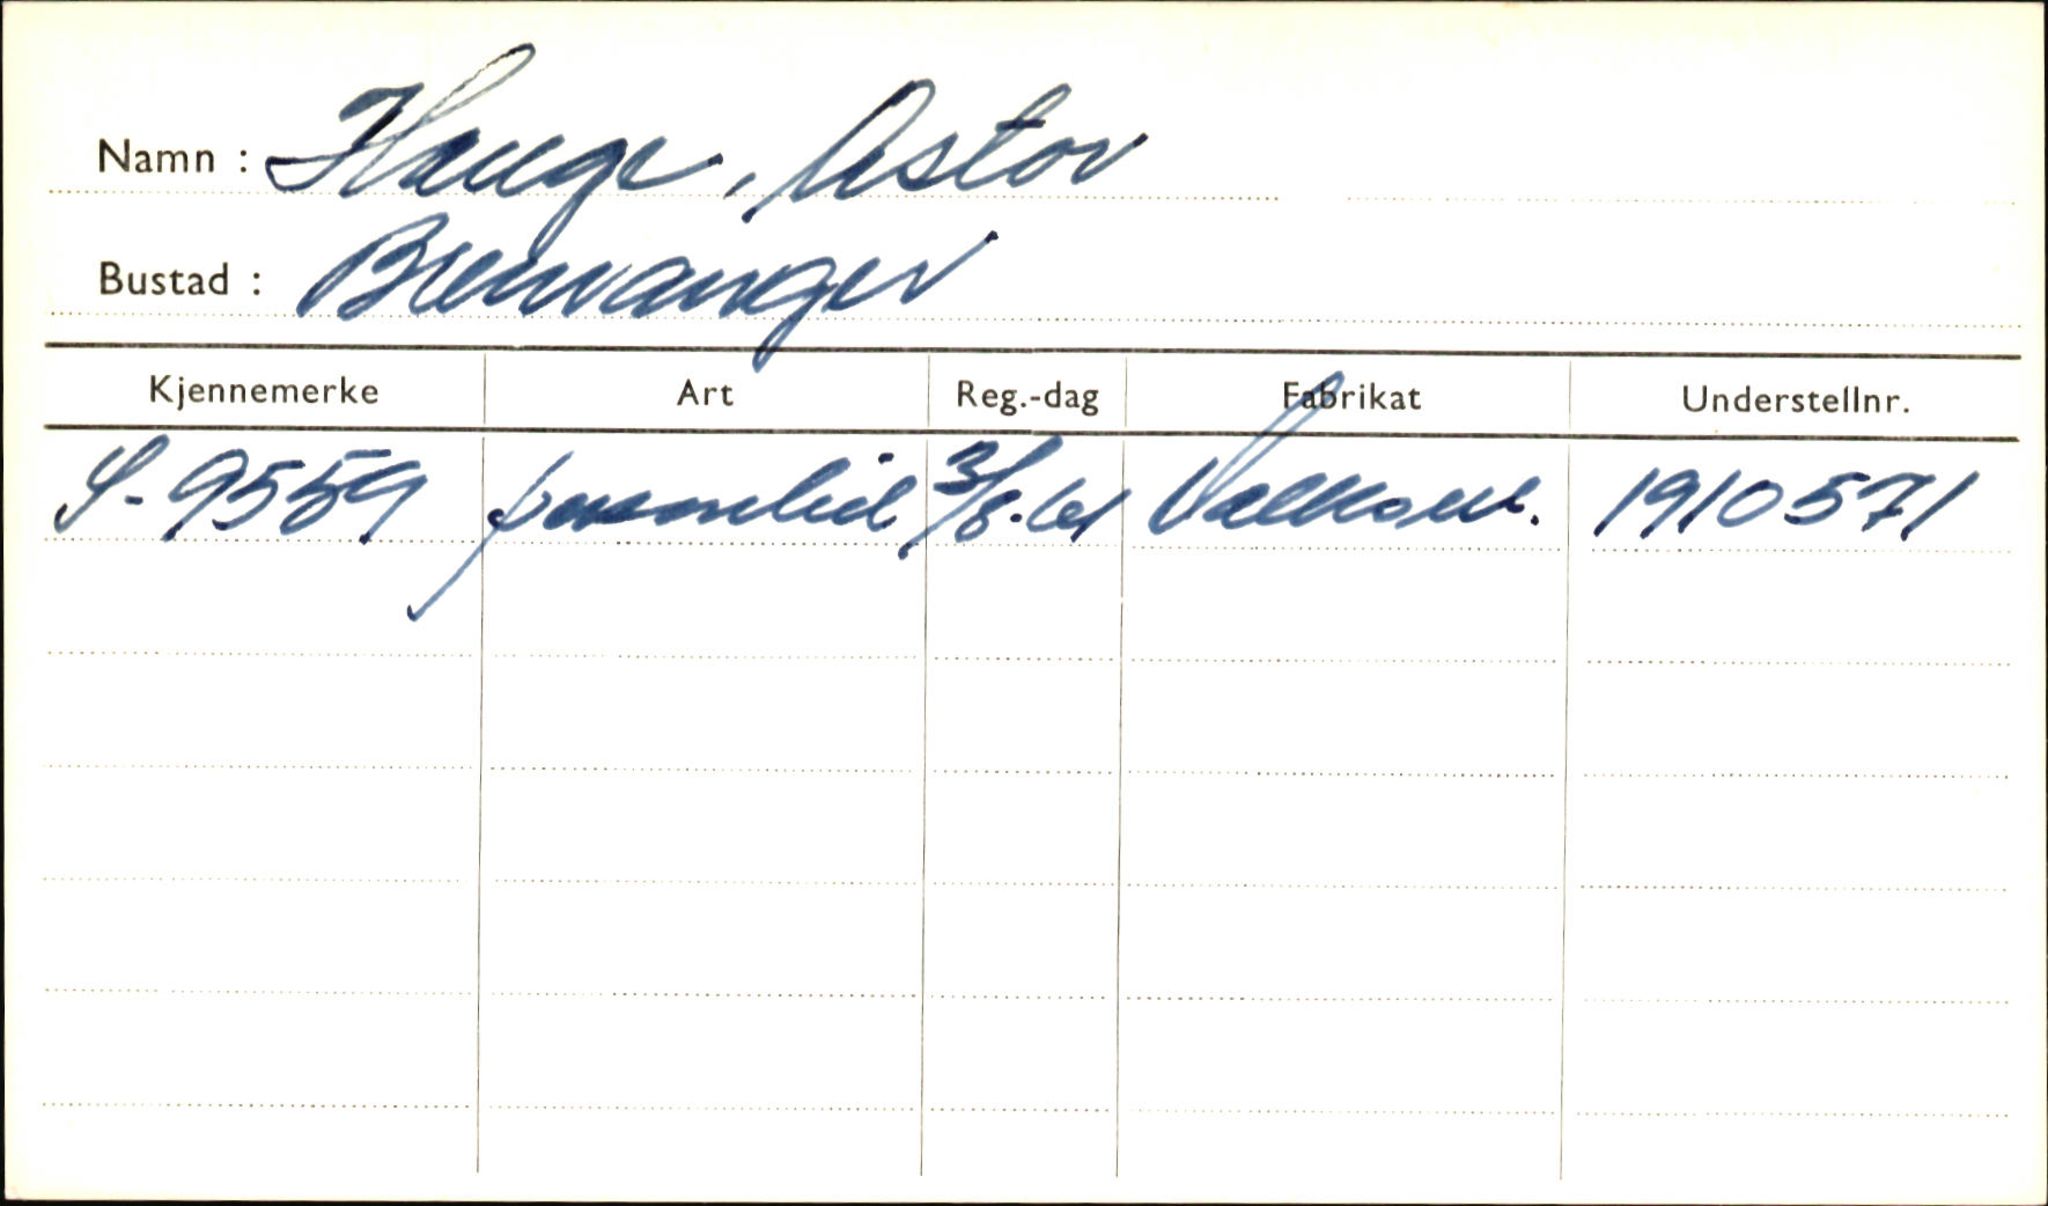 Namn : Hauge, Astor
Bustad : Bremanger
Kjennemerke Art Reg.-dag Fabrikat Understellnr.
S-9559 personbil 3/8-61 Volksw. 1910571